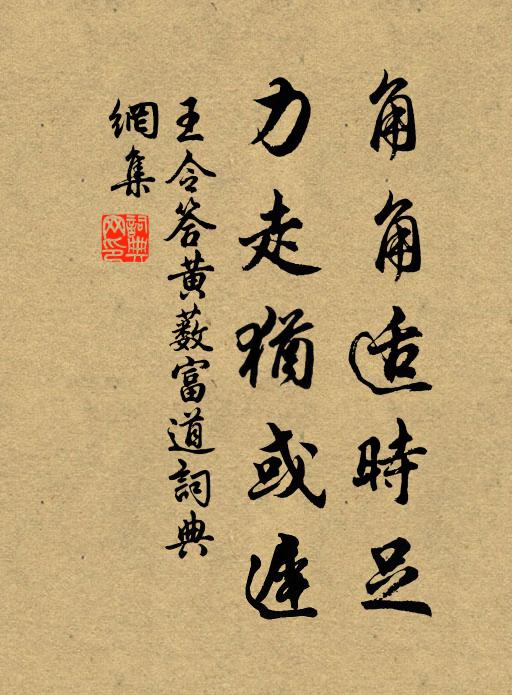 角角适時足
力走猶或遲
王令答黃藪富道詞典
網集
詞典
网印